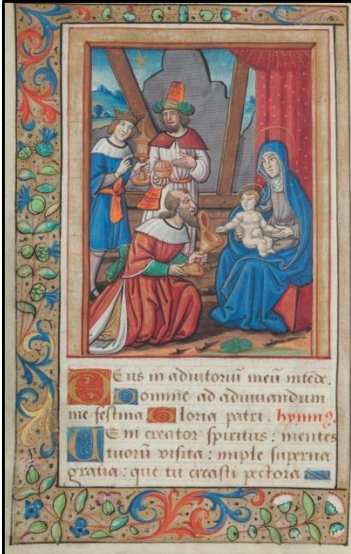 Deus in adiutoriū meū intēde.
Domine ad adiuuandum
me festina Gloria patri. hymnꝰ
Veni creator spiritus: mentes
tuorū visita: imple superna
gratia: que tu creasti pectora